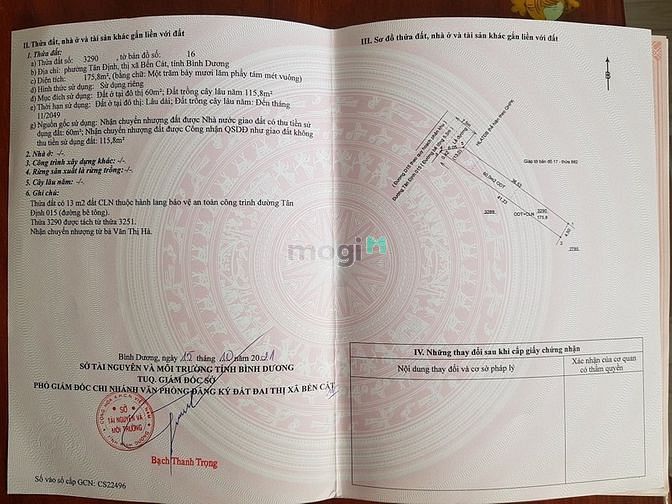 II. Thửa đất, nhà ở và tài sản khác gắn liền với đất
1. Thửa đất:
a) Thửa đất số: 3290 , tờ bản đồ số: 16
b) Địa chỉ: phường Tân Định, thị xã Bến Cát, tỉnh Bình Dương
c) Diện tích: 175,8m², (bằng chữ: Một trăm bảy mươi lăm phẩy tám mét vuông)
d) Hình thức sử dụng: Sử dụng riêng
đ) Mục đích sử dụng: Đất ở tại đô thị 60m²; Đất trồng cây lâu năm 115,8m²
e) Thời hạn sử dụng: Đất ở tại đô thị: Lâu dài; Đất trồng cây lâu năm: Đến tháng
11/2049
g) Nguồn gốc sử dụng: Nhận chuyển nhượng đất được Nhà nước giao đất có thu tiền sử
dụng đất: 60m²; Nhận chuyển nhượng đất được Công nhận QSDĐ như giao đất không
thu tiền sử dụng đất: 115,8m²
2. Nhà ở: -/-
3. Công trình xây dựng khác: -/-
4. Rừng sản xuất là rừng trồng: -/-
5. Cây lâu năm: -/-
6. Ghi chú:
Thửa đất có 13 m2 đất CLN thuộc hành lang bảo vệ an toàn công trình đường Tân
Định 015 (đường bê tông).
Thửa 3290 được tách từ thửa 3251.
Nhận chuyển nhượng từ bà Văn Thị Hà.
Bình Dương, ngày 12 tháng 10 năm 2021
SỞ TÀI NGUYÊN VÀ MÔI TRƯỜNG TỈNH BÌNH DƯƠNG
TUQ. GIÁM ĐỐC SỞ
PHÓ GIÁM ĐỐC CHI NHÁNH VĂN PHÒNG ĐĂNG KÝ ĐẤT ĐAI THỊ XÃ BẾN CÁT
SỞ
TÀI NGUYÊN VÀ
MÔI TRƯỜNG
TỈNH BÌNH DƯƠNG
Bạch Thanh Trọng
Số vào sổ cấp GCN: CS22496
mogi
III. Sơ đồ thửa đất, nhà ở và tài sản khác gắn liền với đất
B
Giáp tờ bản đồ 17 - thửa 882
36.52
60.0m2 ODT
41.23
3289
ODT+CLN
3290
175.8
4.50
2785
IV. Những thay đổi sau khi cấp giấy chứng nhận
Nội dung thay đổi và cơ sở pháp lý
Xác nhận của cơ quan
có thẩm quyền